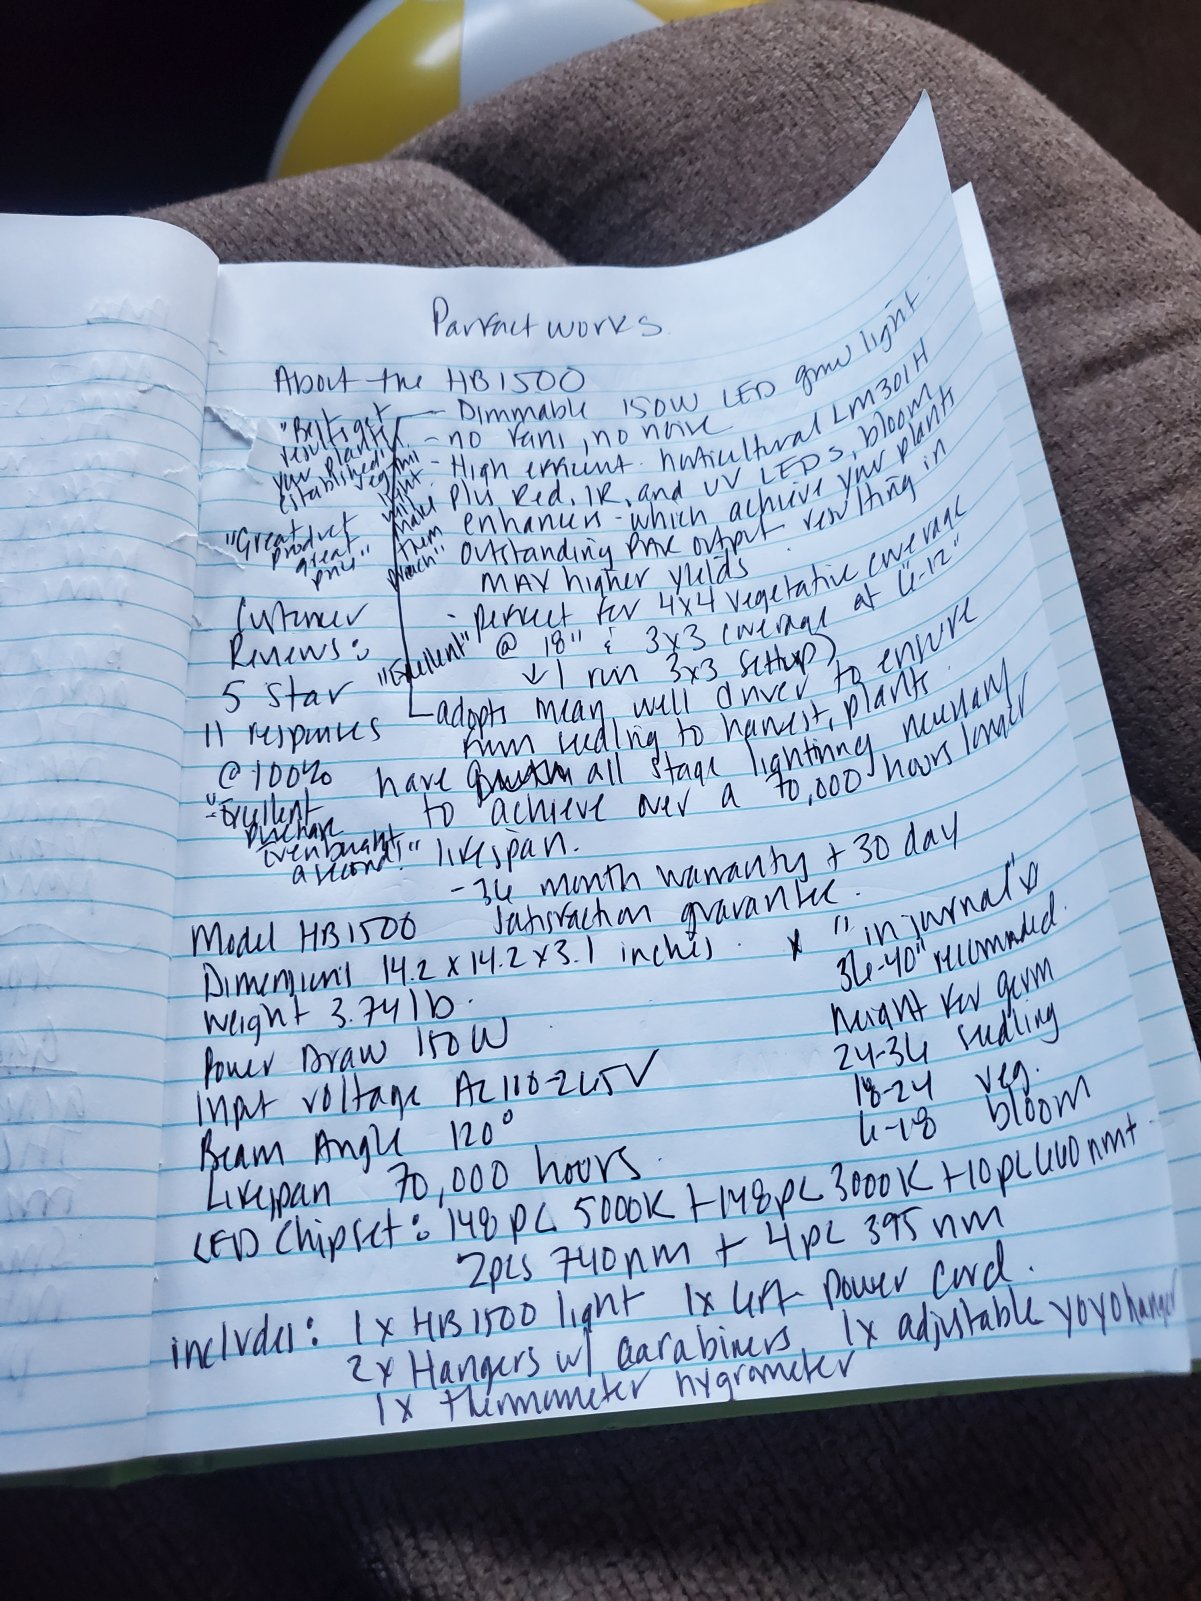 Parfactworks
About the HB1500
- Dimmable 150W LED grow light
- no fans, no noise
- High efficient horticultural LM301H
plus Red, IR, and UV LEDs, bloom
enhancers - which achieve your plants
outstanding PAR output resulting in
MAX higher yields
- perfect for 4x4 vegetative coverage
@ 18" & 3x3 coverage at 6-12"
↓ I run 3x3 settup)
adopts mean well driver to ensure
from seedling to harvest, plants
have all stage lightinng necessary
to achieve over a 70,000 hours longer
lifespan.
- 36 month warranty + 30 day
satisfaction guarantee.
"Best
results
your plants
established
veg this
light
will
make
them
preach"
"Great
product
great
price"
Customer
Reviews:
"Excellent"
5 star
11 responses
@ 100%
"Excellent
purchase
Even bought
a second!"
Model HB1500
Dimensions 14.2 x 14.2 x 3.1 inches
Weight 3.74 lb.
Power Draw 150W
Input voltage AC110-265V
Beam Angle 120°
Lifespan 70,000 hours.
x "in journal"
36-40" recommended
height for germ
24-36 seedling
18-24 veg.
6-18 bloom
LED Chipset: 148pc 5000K + 148pc 3000K + 10pc 660nm +
2pcs 740nm + 4pc 395nm
includes: 1x HB1500 light 1x 6ft power cord.
2x Hangers w/ carabiners 1x adjustable yoyo hanger
1x thermometer hygrometer